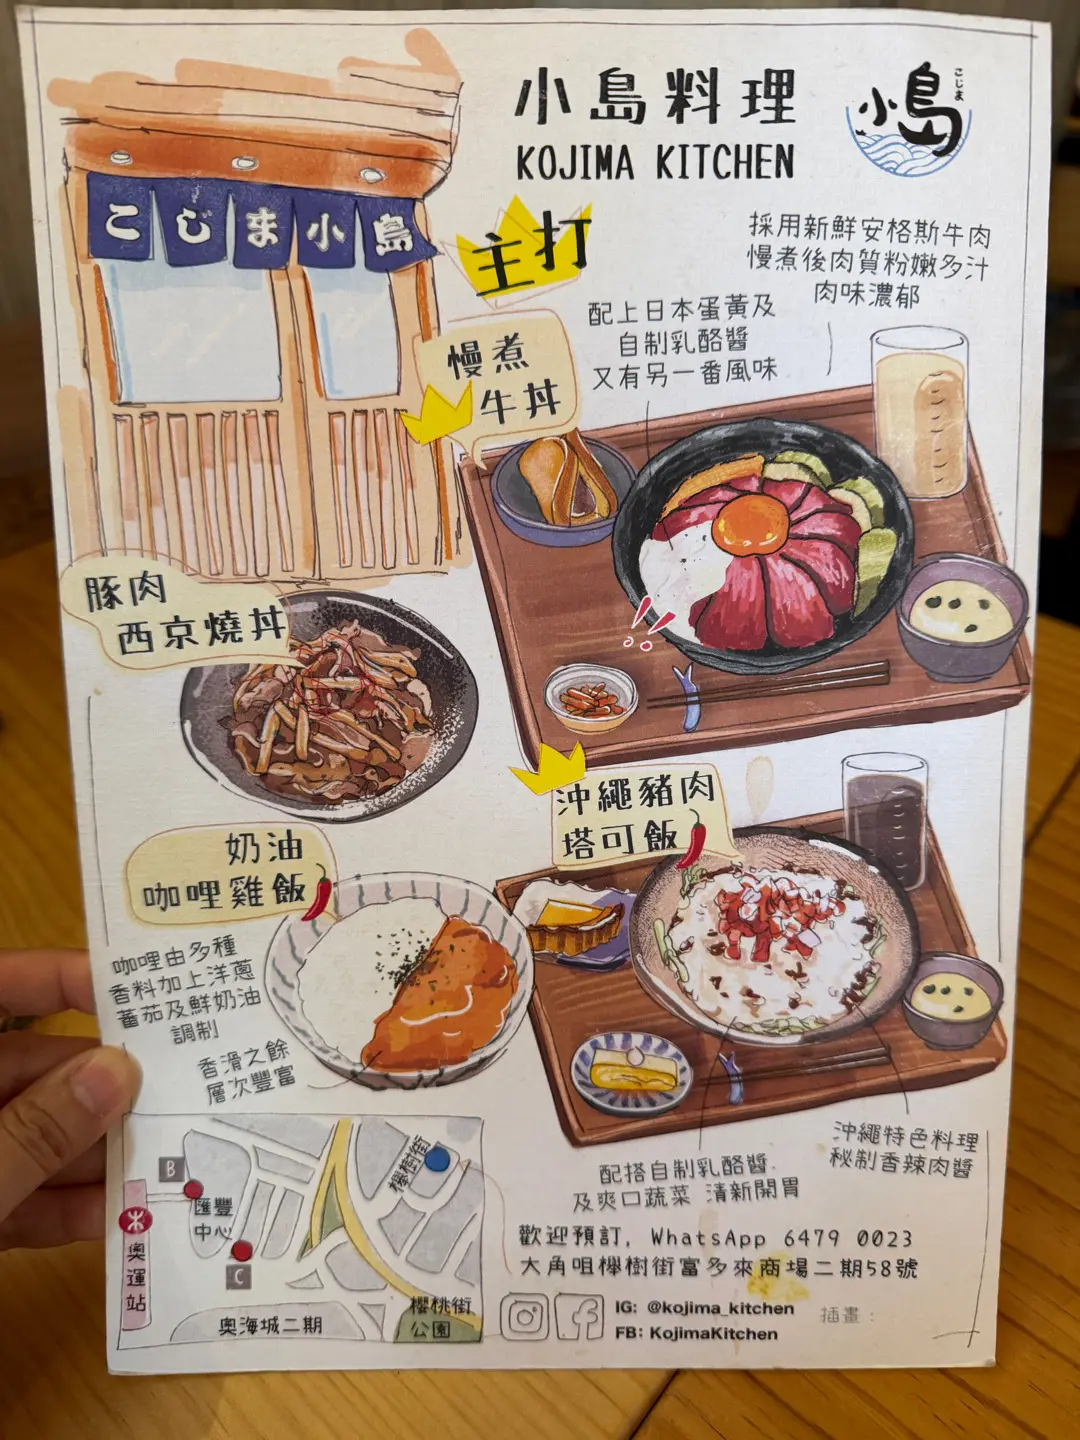 小島料理
KOJIMA KITCHEN
小島
こじま
こじま小島
主打
採用新鮮安格斯牛肉
慢煮後肉質粉嫩多汁
肉味濃郁
配上日本蛋黃及
自制乳酪醬
又有另一番風味
慢煮
牛丼
豚肉
西京燒丼
沖繩豬肉
塔可飯
奶油
咖哩雞飯
咖哩由多種
香料加上洋蔥
蕃茄及鮮奶油
調制
香滑之餘
層次豐富
沖繩特色料理
秘制香辣肉醬
配搭自制乳酪醬
及爽口蔬菜 清新開胃
B
匯豐
中心
C
奧運站
櫸樹街
奧海城二期
櫻桃街
公園
歡迎預訂, WhatsApp 6479 0023
大角咀櫸樹街富多來商場二期58號
IG: @kojima_kitchen
FB: KojimaKitchen
插畫: